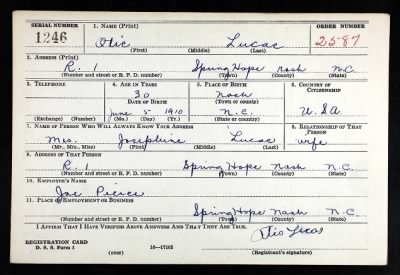 SERIAL NUMBER
1. NAME (Print)
ORDER NUMBER
1246
Otis Lucas
2587
(First) (Middle) (Last)
2. ADDRESS (Print)
R. 1 Spring Hope Nash N.C.
(Number and street or R. F. D. number) (Town) (County) (State)
3. TELEPHONE
4. AGE IN YEARS
5. PLACE OF BIRTH
6. COUNTRY OF CITIZENSHIP
30
Nash
DATE OF BIRTH
(Town or county)
June 5 1910
N.C.
U.S.A
(Exchange) (Number)
(Mo.) (Day) (Yr.)
(State or country)
7. NAME OF PERSON WHO WILL ALWAYS KNOW YOUR ADDRESS
8. RELATIONSHIP OF THAT PERSON
Mrs. Josephine Lucas
wife
(Mr., Mrs., Miss) (First) (Middle) (Last)
9. ADDRESS OF THAT PERSON
R. 1 Spring Hope Nash N.C.
(Number and street or R. F. D. number) (Town) (County) (State)
10. EMPLOYER'S NAME
Joe Pierce
11. PLACE OF EMPLOYMENT OR BUSINESS
Spring Hope Nash N.C.
(Number and street or R. F. D. number) (Town) (County) (State)
I AFFIRM THAT I HAVE VERIFIED ABOVE ANSWERS AND THAT THEY ARE TRUE.
Otis Lucas
REGISTRATION CARD
D. S. S. Form 1
16—17105
(over)
(Registrant's signature)